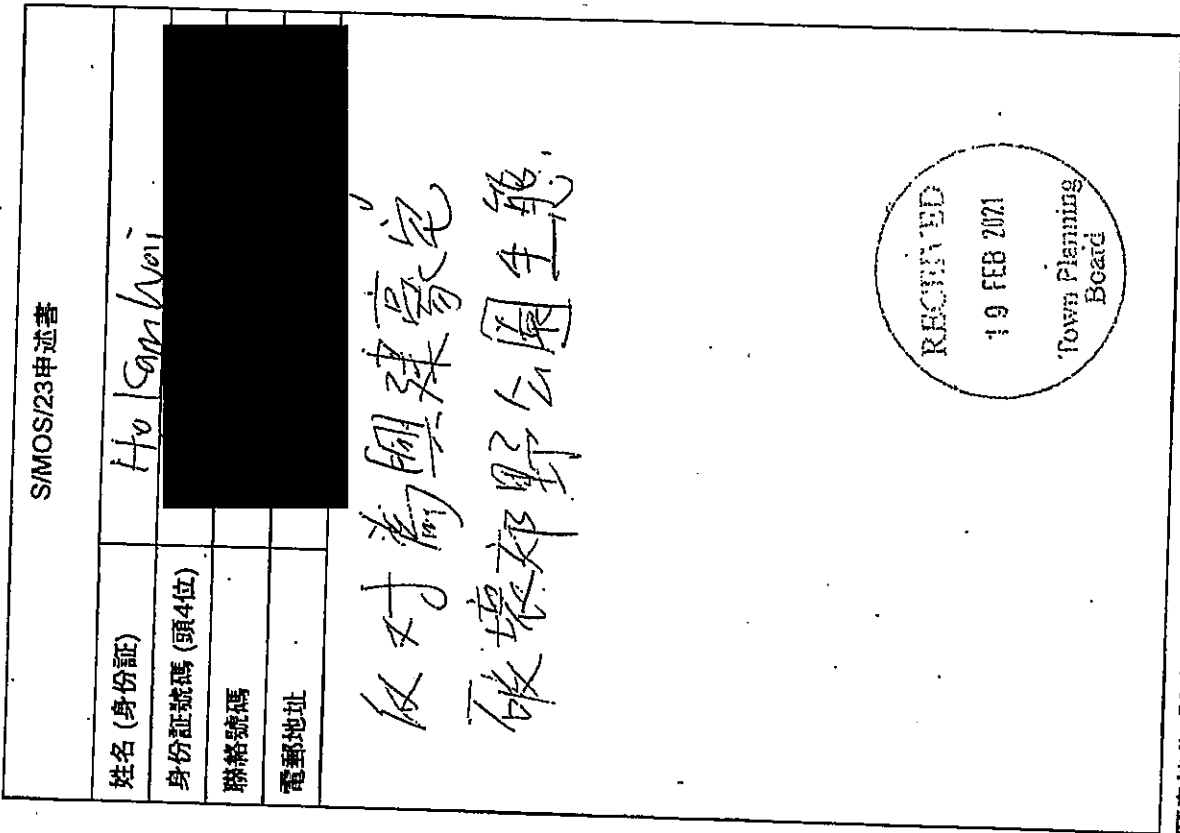 S/MOS/23申述書
姓名 (身份証)
Ho Kam Wai
身份証號碼 (頭4位)
聯絡號碼
電郵地址
反对為興建豪宅
破壞郊野公園生態.
RECEIVED
19 FEB 2021
Town Planning
Board